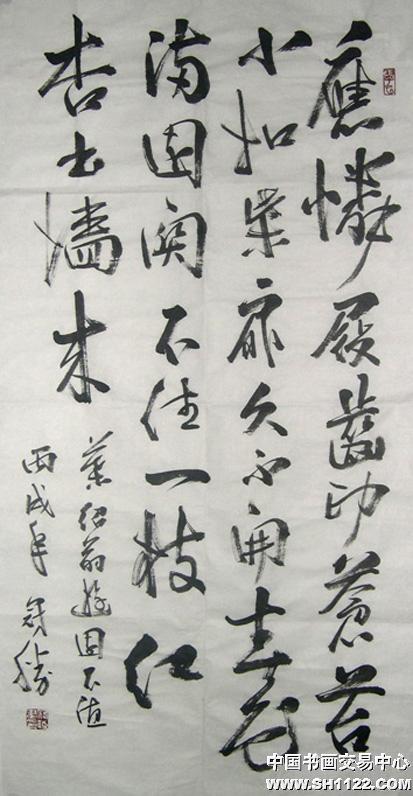 應憐屐齒印蒼苔
小扣柴扉久不開春色
满園関不住一枝红
杏出墻来
葉紹翁遊園不值
丙戌年
中国书画交易中心
www.SH1122.com